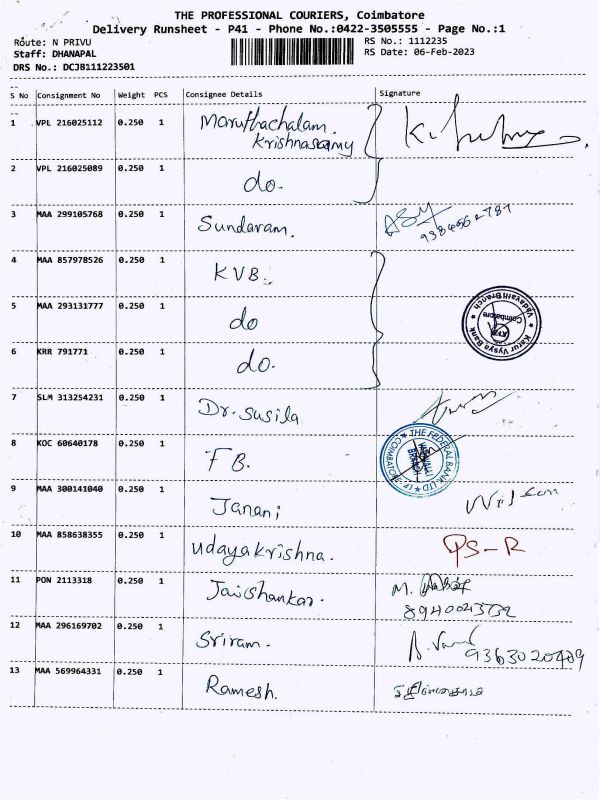 THE PROFESSIONAL COURIERS, Coimbatore
Delivery Runsheet - P41 - Phone No.:0422-3505555 - Page No.:1
Route: N PRIVU RS No.: 1112235
Staff: DHANAPAL RS Date: 06-Feb-2023
DRS No.: DCJB111223501
S No Consignment No Weight PCS Consignee Details Signature
1 VPL 216025112 0.250 1 Maruthachalam.
Krishnasamy
2 VPL 216025089 0.250 1 do.
3 MAA 299105768 0.250 1 Sundaram.
4 MAA 857978526 0.250 1 KVB.
5 MAA 293131777 0.250 1 do
6 KRR 791771 0.250 1 do.
Karur Vysya Bank
Vadavalli Branch
Coimbatore
7 SLM 313254231 0.250 1 Dr. Susila
8 KOC 60640178 0.250 1 FB.
THE FEDERAL BANK LTD
COIMBATORE
BRANCH
9 MAA 300141040 0.250 1 Janani Wilson
10 MAA 858638355 0.250 1 Udayakrishna. PS-R
11 PON 2113318 0.250 1 Jaishankar. M.
12 MAA 296169702 0.250 1 Sriram.
9363020409
13 MAA 569964331 0.250 1 Ramesh.